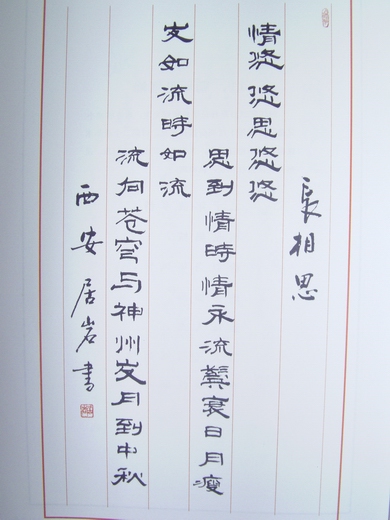 長相思
情悠悠思悠悠
思到情時情永流鬢衰日月瘦
岁如流時如流
流向苍穹与神州岁月到中秋
西安居岩書